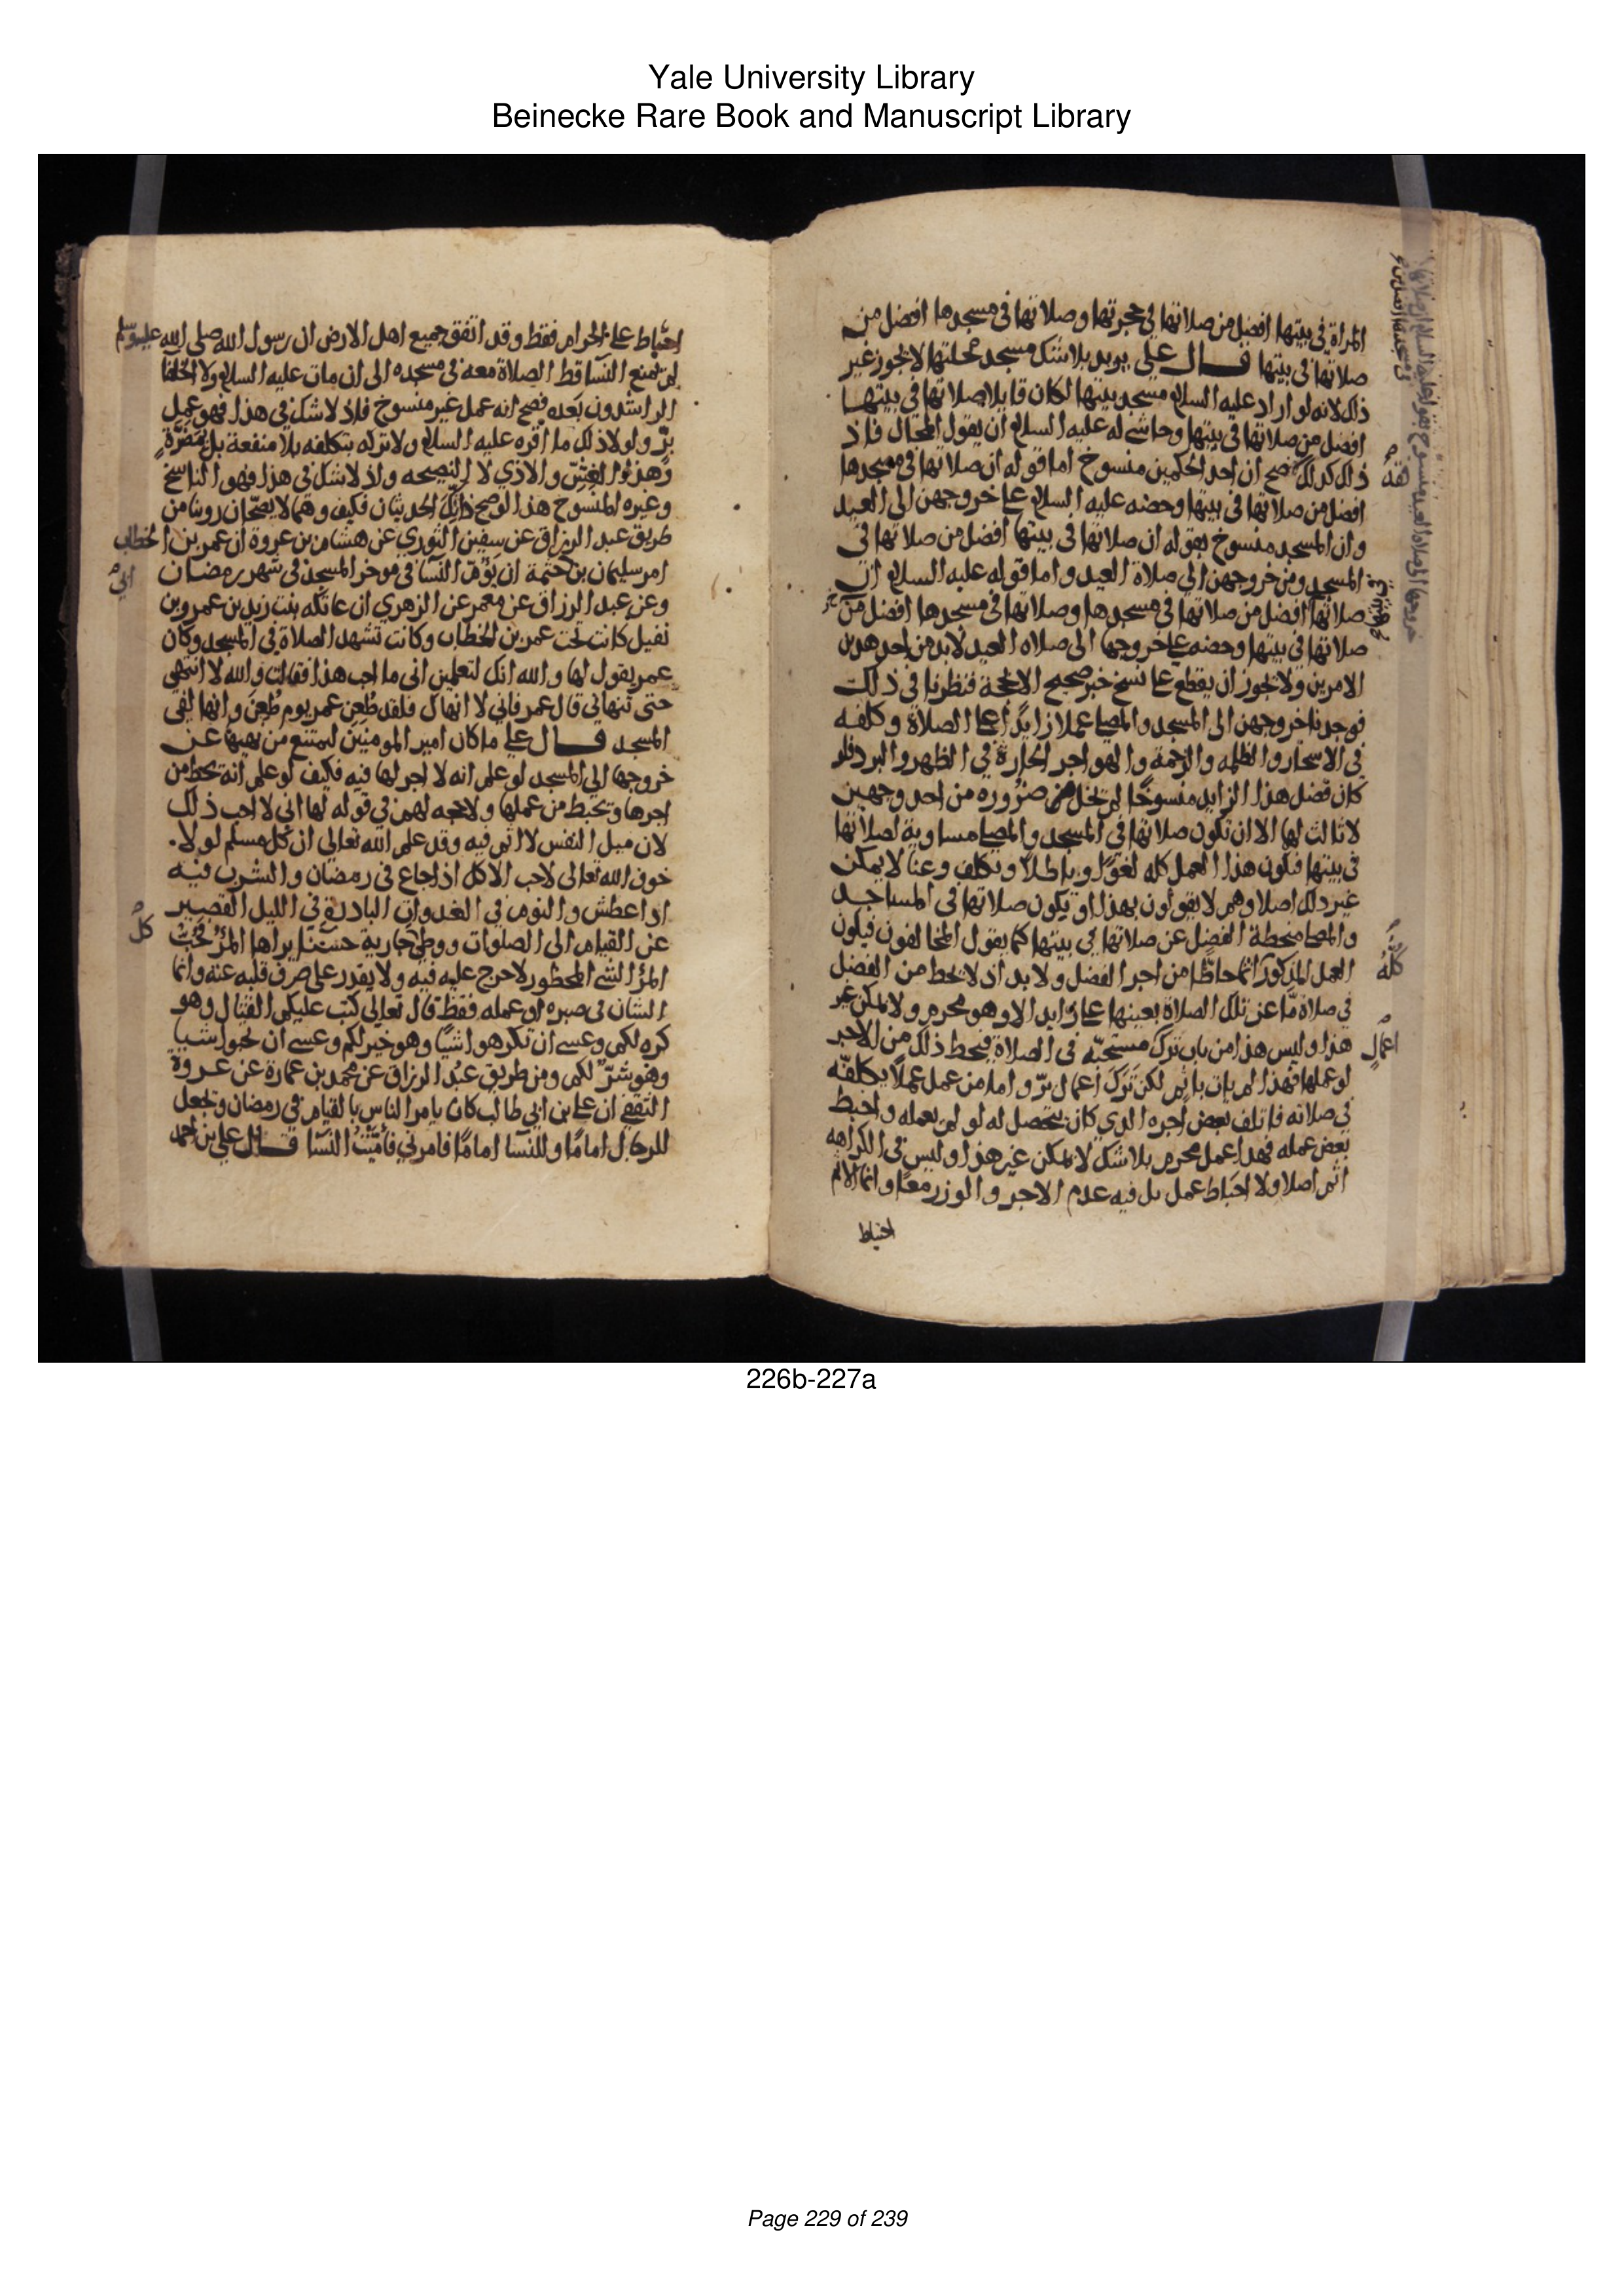 Yale University Library
Beinecke Rare Book and Manuscript Library
المراة في بيتها افضل من صلاتها في حجرتها وصلاتها في مسجدها افضل من
صلاتها في بيتها قال علي يريد بلا شك مسجد محلتها لا يجوز غير
ذلك لانه لو اراد عليه السلام مسجد بيتها لكان قايلا صلاتها في بيتها
افضل من صلاتها في بيتها وحاشى له عليه السلام ان يقول المحال فاذ
ذلك كذلك فقد صح ان احد الحكمين منسوخ اما قوله ان صلاتها في مسجدها
افضل من صلاتها في بيتها وحضه عليه السلام على خروجهن الى العيد
وان المسجد منسوخ بقوله ان صلاتها في بيتها افضل من صلاتها في
المسجد ومن خروجهن الى صلاة العيد واما قوله عليه السلام ان
صلاتها في بيتها افضل من صلاتها في مسجدها وصلاتها في مسجدها افضل من
صلاتها في بيتها وحضه على خروجها الى صلاه العيد لابد من احد هدين
الامرين ولا يجوز ان يقطع على نسخ خبر صحيح الا بحجة فنظرنا في ذلك
فوجدنا خروجهن الى المسجد والمصلى عملا زايدا على الصلاة وكلفه
في الاسحار والظلمه والزحمة والهواجر الحارة في الظهر والبرد فلو
كان فضل هذا الزايد منسوخا لم يخل من ضروره من احد وجهين
لا ثالث لها الا ان تكون صلاتها في المسجد والمصلى مساوية لصلاتها
في بيتها فيكون هذا العمل كله لغوا وباطلا وتكلف وعنا لا يمكن
غير ذلك اصلا وهم لا يقولون بهذا او يكون صلاتها في المساجد
والمصلى منحطة الفضل عن صلاتها في بيتها كما يقول المخالفون فيكون
العمل المذكور كله اثما حاطا من اجر الفضل ولا بد اذ لا يحط من الفضل
في صلاة ما عن تلك الصلاة بعينها عمل زايد الا وهو محرم ولا يمكن غير
هذا وليس هذا من باب ترك مستحبه في الصلاة فيحط ذلك من الاجر
لو عملها فهذا لم يات باثم لكن ترك اعمال بر واما من عمل عملا يكلفه
في صلاته فاتلف بعض اجره الدي كان يتحصل له لو لم يعمله واحبط
بعض عمله فهدا عمل محرم بلا شك لا يمكن غير هذا وليس في الكراهه
اثم اصلا ولا احباط عمل بل فيه عدم الاجر والوزر معا وانما الاثم
احباط
احباط على الحرام فقط وقد اتفق جميع اهل الارض ان رسول الله صلى الله عليه وسلم
لم يمنع النسا قط الصلاة معه في مسجده الى ان مات عليه السلام ولا الخلفا
الراشدون بعده فصح انه عمل غير منسوخ فاذ لا شك في هذا فهو عمل
بر ولولا ذلك ما اقره عليه السلام ولا تركه يتكلفنه بلا منفعة بل بمضرة
وهذا الغش والاذي لا النصيحه واذ لا شك في هذا فهو الناسخ
وغيره المنسوخ هذا لو صح ذانك الحديثان فكيف وهما لا يصحان روينا من
طريق عبد الرزاق عن سفين الثوري عن هشام بن عروة ان عمر بن الخطاب
امر سليمان بن ابي حثمة ان يؤم النسا في موخر المسجد في شهر رمضان
وعن عبد الرزاق عن معمر عن الزهري ان عاتكه بنت زيد بن عمرو بن
نفيل كانت تحت عمر بن الخطاب وكانت تشهد الصلاة في المسجد وكان
عمر يقول لها والله انك لتعلمين اني ما احب هذا فقالت والله لا انتهي
حتى تنهاني قال عمر فاني لا انهاك فلقد طعن عمر يوم طعن وانها لفي
المسجد قال علي ما كان امير المومنين ليمتنع من نهيها عن
خروجها الى المسجد لو علم انه لا اجر لها فيه فكيف لو علم انه يحط من
اجرها ويحبط من عملها ولا حجه لهم في قوله لها اني لا احب ذلك
لان ميل النفس لا اثم فيه وقد علم الله تعالى ان كل مسلم لولا
خوف الله تعالى لاحب الاكل اذا جاع في رمضان والشرب فيه
اذا عطش والنوم في الغدوات البادرة في الليل القصير
عن القيام الى الصلوات ووطي كل جارية حسنا يراها المرؤ فيحب
المرؤ الشي المحظور لا حرج عليه فيه ولا يقدر على صرف قلبه عنه وانما
الشان في صبره او عمله فقط قال تعالى كتب عليكم القتال وهو
كره لكم وعسى ان تكرهوا شيا وهو خير لكم وعسى ان تحبوا شيا
وهو شر لكم ومن طريق عبد الرزاق عن محمد بن عمارة عن عروة
الثقفي ان علي بن ابي طالب كان يامر الناس بالقيام في رمضان ويجعل
للرجال اماما وللنسا اماما فامرني فأممت النسا قال علي بن احمد
226b-227a
Page 229 of 239